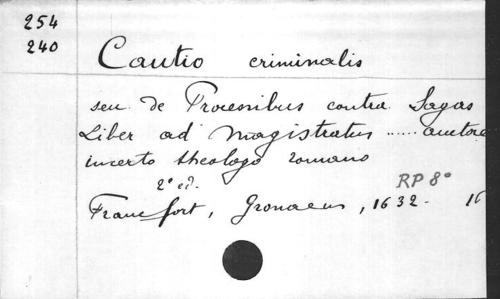 254
240
Cautio criminalis
seu de Processibus contra Sagas
Liber ad Magistratus ...... auctore
incerto theologo romano
2ª ed.
RP 8º
Francfort, Gronaeus, 1632. 16